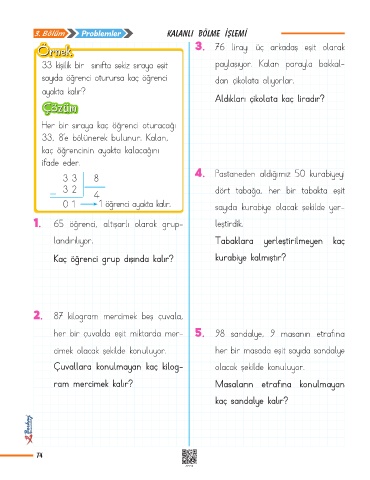 3. Bölüm
Problemler
KALANLI BÖLME İŞLEMİ
Örnek
33 kişilik bir sınıfta sekiz sıraya eşit
sayıda öğrenci oturursa kaç öğrenci
ayakta kalır?
Çözüm
Her bir sıraya kaç öğrenci oturacağı
33, 8'e bölünerek bulunur. Kalan,
kaç öğrencinin ayakta kalacağını
ifade eder.
33 8
- 32 4
01 → 1 öğrenci ayakta kalır.
1. 65 öğrenci, altışarlı olarak grup-
landırılıyor.
Kaç öğrenci grup dışında kalır?
2. 87 kilogram mercimek beş çuvala,
her bir çuvalda eşit miktarda mer-
cimek olacak şekilde konuluyor.
Çuvallara konulmayan kaç kilog-
ram mercimek kalır?
3. 76 lirayı üç arkadaş eşit olarak
paylaşıyor. Kalan parayla bakkal-
dan çikolata alıyorlar.
Aldıkları çikolata kaç liradır?
4. Pastaneden aldığımız 50 kurabiyeyi
dört tabağa, her bir tabakta eşit
sayıda kurabiye olacak şekilde yer-
leştirdik.
Tabaklara yerleştirilmeyen kaç
kurabiye kalmıştır?
5. 98 sandalye, 9 masanın etrafına
her bir masada eşit sayıda sandalye
olacak şekilde konuluyor.
Masaların etrafına konulmayan
kaç sandalye kalır?
74